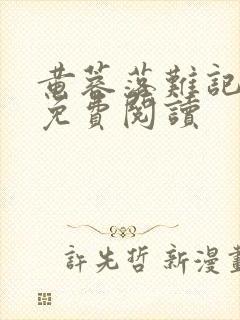 黄蓉落難記
免費閱讀
許先哲 新漫畫